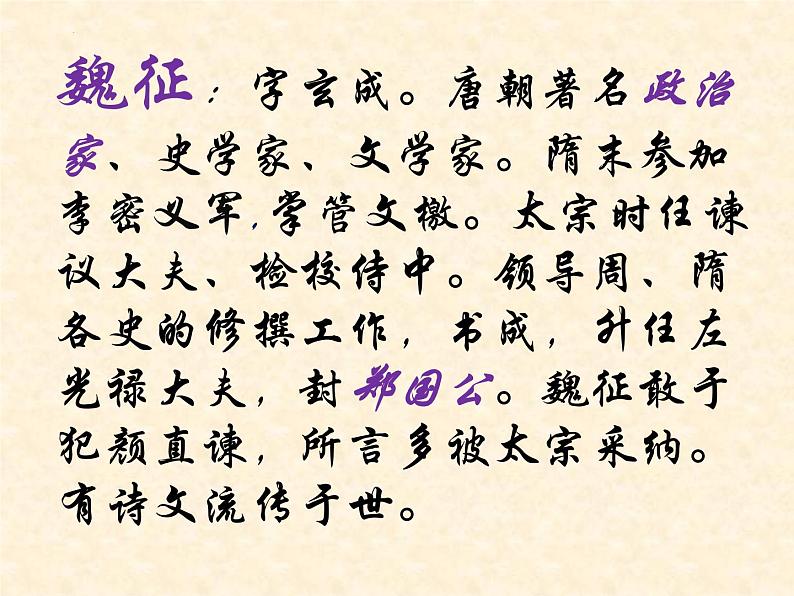 魏征：字玄成。唐朝著名政治
家、史学家、文学家。隋末参加
李密义军,掌管文檄。太宗时任谏
议大夫、检校侍中。领导周、隋
各史的修撰工作，书成，升任左
光禄大夫，封郑国公。魏征敢于
犯颜直谏，所言多被太宗采纳。
有诗文流传于世。